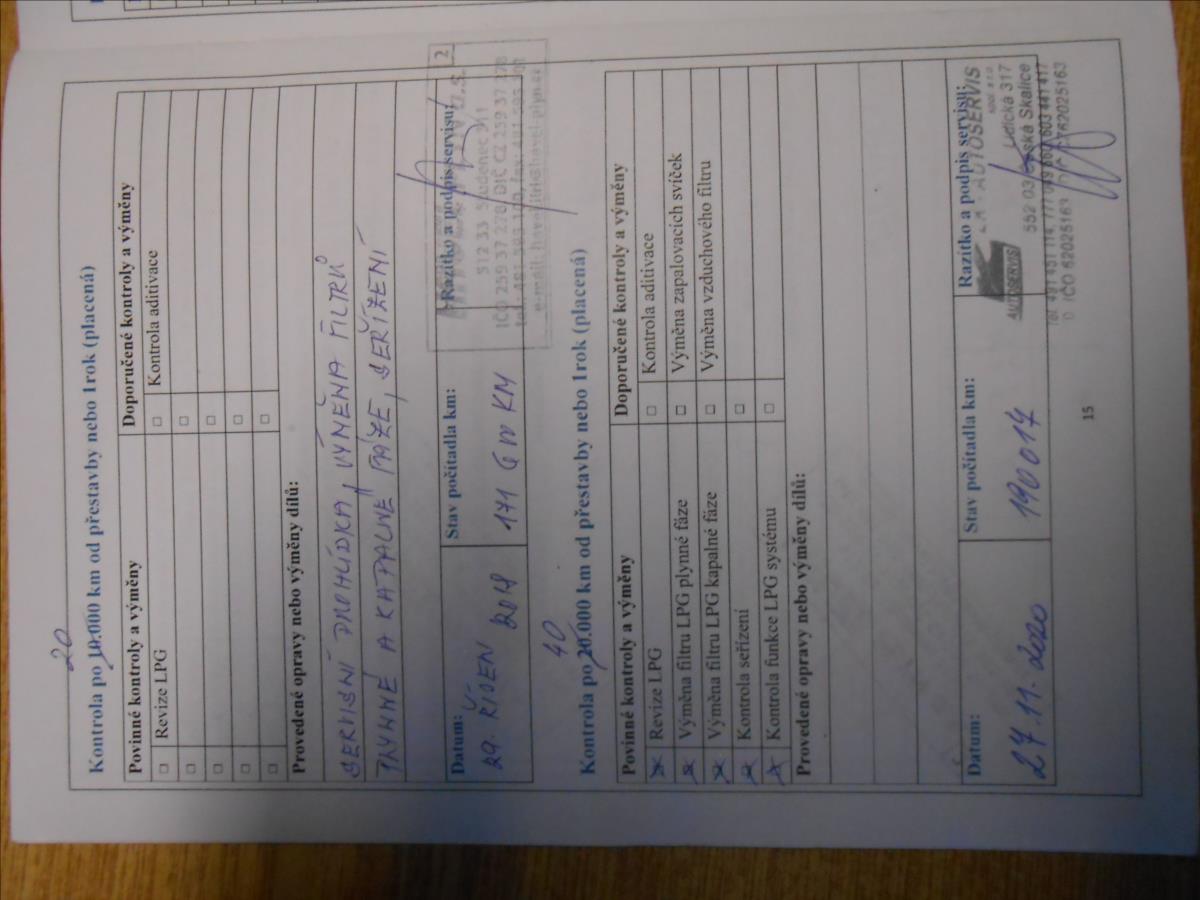 20
Kontrola po 10.000 km od přestavby nebo 1rok (placená)
Povinné kontroly a výměny Doporučené kontroly a výměny
□ Revize LPG □ Kontrola aditivace
□ □
□ □
□ □
□ □
Provedené opravy nebo výměny dílů:
SERVISNÍ PROHLÍDKA, VÝMĚNA FILTRŮ
PLYNNÉ A KAPALNÉ FÁZE, SEŘÍZENÍ
Datum: Stav počítadla km: Razítko a podpis servisu:
29. ŘÍJEN 171 600 KM
2
512 33 Studenec 311
IČO 259 37 278, DIČ CZ 259 37 278
40
Kontrola po 20.000 km od přestavby nebo 1rok (placená)
Povinné kontroly a výměny Doporučené kontroly a výměny
Revize LPG □ Kontrola aditivace
Výměna filtru LPG plynné fáze □ Výměna zapalovacích svíček
Výměna filtru LPG kapalné fáze □ Výměna vzduchového filtru
Kontrola seřízení □
Kontrola funkce LPG systému □
Provedené opravy nebo výměny dílů:
Datum: Stav počítadla km: Razítko a podpis servisu:
27.11.2020 190017
AUTOSERVIS
AUTOSERVIS
spol. s r.o.
317
552 03 Skalice
IČO 62025163
15